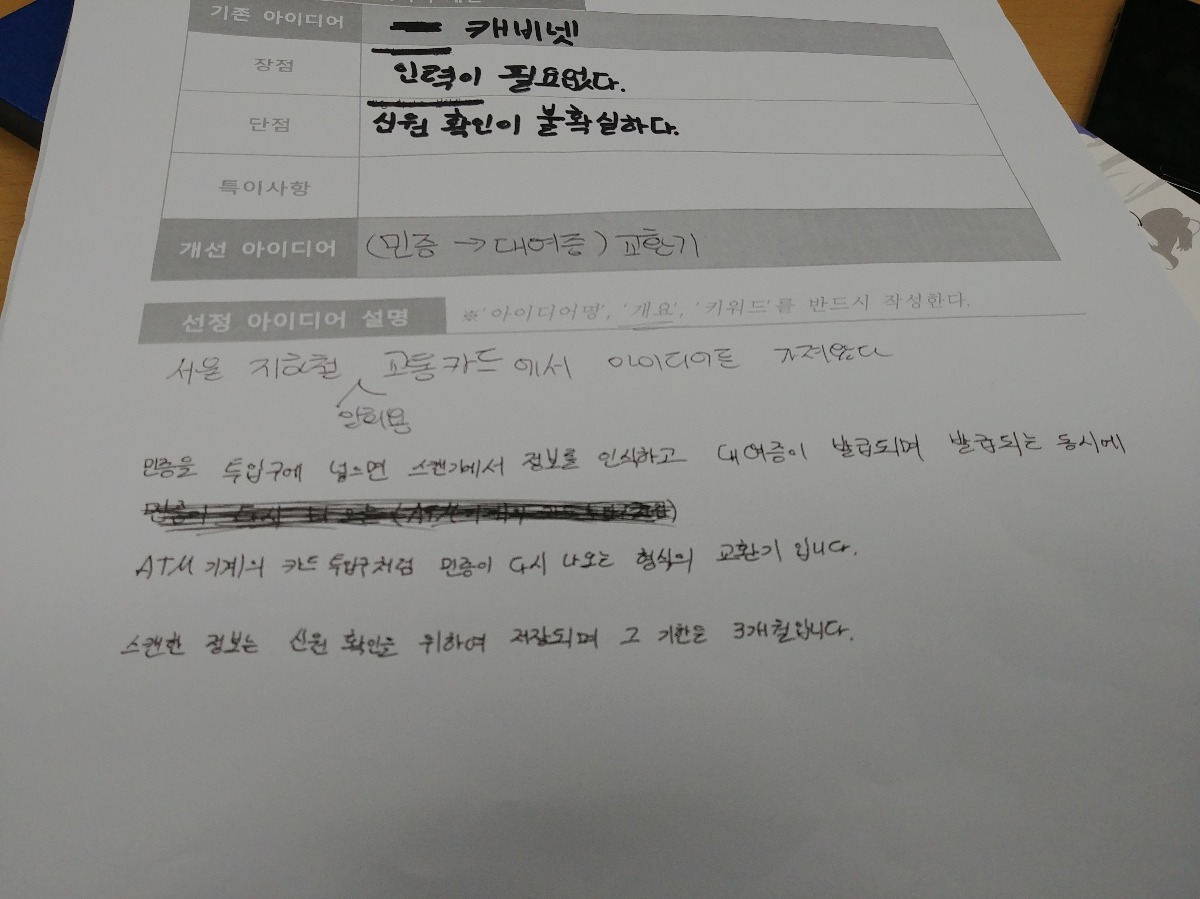 기존 아이디어 캐비넷
장점 인력이 필요없다.
단점 신원 확인이 불확실하다.
특이사항
개선 아이디어 (민증 → 대여증) 교환기
선정 아이디어 설명 ※'아이디어명', '개요', '키워드'를 반드시 작성한다.
서울 지하철 교통카드에서 아이디어를 가져왔다
일회용
민증을 투입구에 넣으면 스캔기에서 정보를 인식하고 대여증이 발급되며 발급되는 동시에
ATM 기계의 카드 투입구처럼 민증이 다시 나오는 형식의 교환기 입니다.
스캔한 정보는 신원 확인을 위하여 저장되며 그 기한은 3개월입니다.